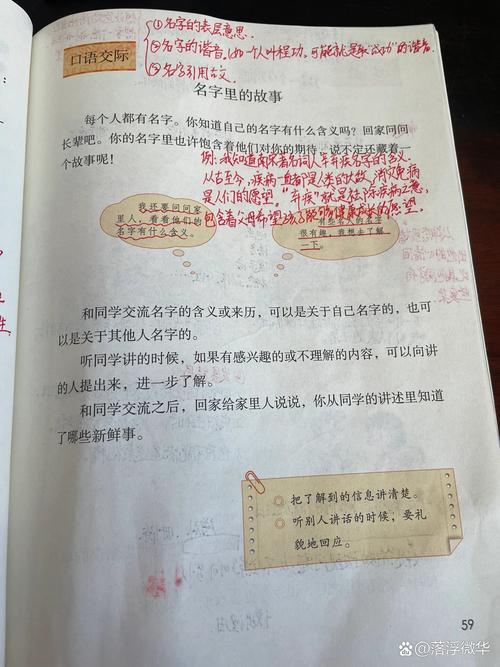 ①名字的表层意思.
②名字的谐音,(如一个人叫程功,可能就是取"成功"的谐音.
③名字引用古文
口语交际
名字里的故事
每个人都有名字。你知道自己的名字有什么含义吗?回家问问
长辈吧。你的名字里也许饱含着他们对你的期待,说不定还藏着一
个故事呢!
例:我知道南宋著名词人辛弃疾名字的含义.
从古至今,疾病一直都是人类的大敌,消灾免病
是人们的愿望。"弃疾"就是祛除疾病之意,
包含着父母希望孩子能够健康成长的愿望。
我还要问问家
里人,看看他们的
名字有什么含义。
有些名人的名字
很有趣,我想去了解
一下。
和同学交流名字的含义或来历,可以是关于自己名字的,也可
以是关于其他人名字的。
听同学讲的时候,如果有感兴趣的或不理解的内容,可以向讲
的人提出来,进一步了解。
和同学交流之后,回家给家里人说说,你从同学的讲述里知道
了哪些新鲜事。
○ 把了解到的信息讲清楚。
○ 听别人讲话的时候,要礼
貌地回应。
生
59
@落浮微华